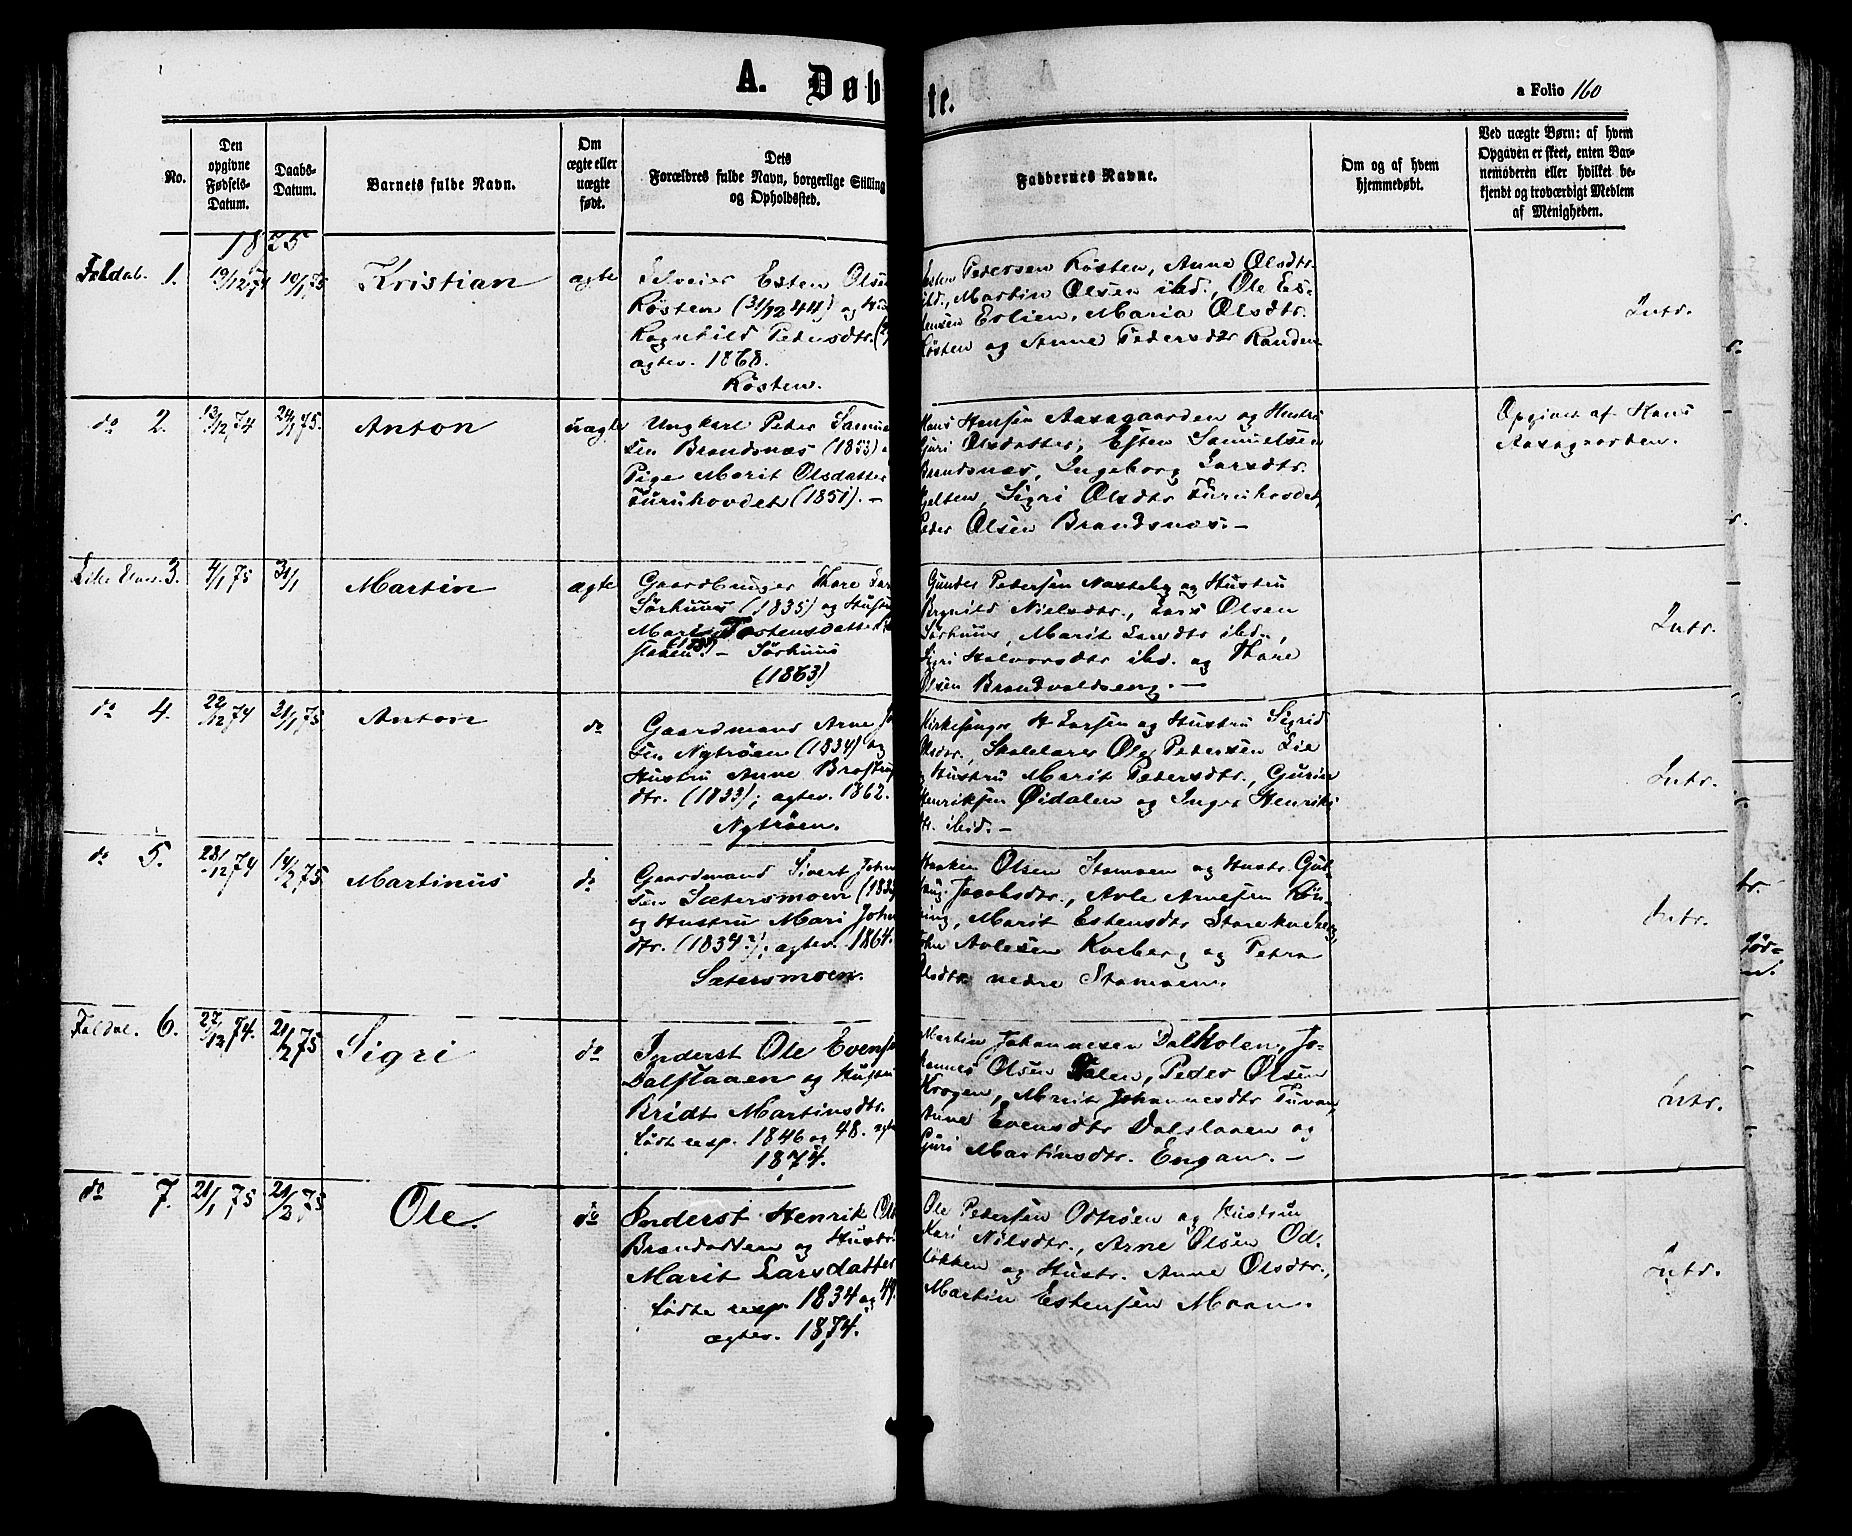 A. Døbte.
a Folio 160
No.
Den opgivne Fødsels-Datum.
Daabs-Datum.
Barnets fulde Navn.
Om ægte eller uægte født.
Dets Forældres fulde Navn, borgerlige Stilling og Opholdssted.
Faddernes Navne.
Om og af hvem hjemmedøbt.
Ved uægte Børn: af hvem
Opgaven er skeet, enten Bar-
nemoderen eller hvilket be-
kjendt og troværdigt Medlem
af Menigheden.
1875
Foldal. 1. 19/12 74 10/1 75 Kristian ægte
Selveier Esten Olsen
Kösten (31/12 44) og
Ragnhild Pedersdtr.
agtev. 1868.
Kösten.
Esten Pedersen Kösten, Anne Olsdtr.
ibid., Martin Olsen ibd., Ole Es-
tensen Erlien, Maria Olsdtr.
Kösten og Anne Pedersdtr Randen
Intr.
do 2. 13/12 74 24/1 75. Anton uægte
Ungkarl Peter Samuel
sen Brandsnæs (1853)
Pige Marit Olsdatter
Furuhovdet (1851). –
Hans Hansen Aasagaarden og Hustru
Guri Olsdatter, Esten Samuelsen
Brandsnæs, Ingeborg Larsdtr.
Sigri Olsdtr Furuhovdet,
Peder Olsen Brandsnæs. –
Opgivet af Hans
Aasagaarden.
Lille Elve. 3. 4/1 75 31/1 Martin ægte
Gaardbruger Thore Lar
Sörhuus (1835) og Hustru
Mari Tostensdatter
Sörhuus
(1863)
Gunder Pedersen Nasteby og Hustru
Nielsdtr., Lars Olsen
Sörhuus, Marit Larsdtr ibd.,
Sigri Halvorsdtr ibd. og Thore
Olsen Brandvoldseng. –
Intr.
do 4. 22/12 74 31/1 75 Anton do
Gaardmand Arne
sen Nytröen (1834) og
Hustru Anne Brostrup
dtr. (1833); agtev. 1862.
Nytröen.
Kirkesanger H Larsen og Hustru Sigrid
Olsdtr., Skolelærer Ole Petersen Lie
og Hustru Marit Pedersdtr., Gunder
Henriksen Öidalen og Inger Henriks
dtr. ibid. –
Intr.
do 5. 28/12 74 14/2 75 Martinus do
Gaardmand Sivert John
sen Sætersmoen
og Hustru Mari John
dtr. (1834?); agtev. 1864.
Sætersmoen.
Haakon Olsen Stamoen og Hustr. Gul-
Jacobsdtr., Avle Arnesen
Marit Estensdtr Storekveberg,
John Avlesen Kveberg og Petra
Olsdtr nedre Stamoen.
Intr.
Foldal. 6. 27/12 74. 21/2 75 Sigri do
Inderst Ole Evens
Dalslaaen og Hustru
Bridt Martinsdtr.
födte resp. 1846 og 48. agtev
1874.
Martin Johannesen Dalholen, Jo-
hannes Olsen Dalen, Peder Olsen
Krogen, Marit Johannesdtr Tuvan,
Anne Evensdtr Dalslaaen og
Guri Martinsdtr. Engan. –
Intr.
do 7. 21/1 75 21/2 75 Ole. do
Inderst Henrik Ols
og Hustr.
Marit Larsdatter
födte resp. 1834 og 49.
ægtev. 1874.
Ole Petersen Odtröen og Hustru
Kari Nilsdtr., Arne Olsen Od-
lökken og Hustr. Anne Olsdtr.,
Martin Estensen Moan.
Intr.